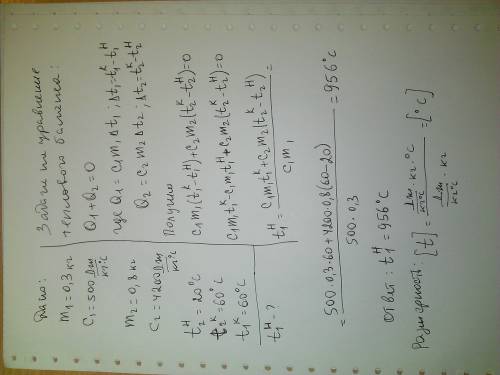 Дано:
m₁=0,3 кг
c₁=500 Дж/кг°C
m₂=0,8 кг
c₂=4200 Дж/кг°C
t₂ᴴ=20°C
t₂ᴷ=60°C
t₁ᴷ=60°C
t₁ᴴ-?
Задача на уравнение
теплового баланса:
Q₁+Q₂=0
где Q₁=c₁m₁Δt₁; Δt₁=t₁ᴷ-t₁ᴴ
Q₂=c₂m₂Δt₂; Δt₂=t₂ᴷ-t₂ᴴ
Получим
c₁m₁(t₁ᴷ-t₁ᴴ)+c₂m₂(t₂ᴷ-t₂ᴴ)=0
c₁m₁t₁ᴷ-c₁m₁t₁ᴴ+c₂m₂(t₂ᴷ-t₂ᴴ)=0
t₁ᴴ=(c₁m₁t₁ᴷ+c₂m₂(t₂ᴷ-t₂ᴴ))/(c₁m₁)=
=(500·0,3·60+4200·0,8(60-20))/(500·0,3)=956°C
Ответ: t₁ᴴ=956°C
Размерность: [t]=(Дж/кг°C·кг·°C)/(Дж/кг°C·кг)=[°C]